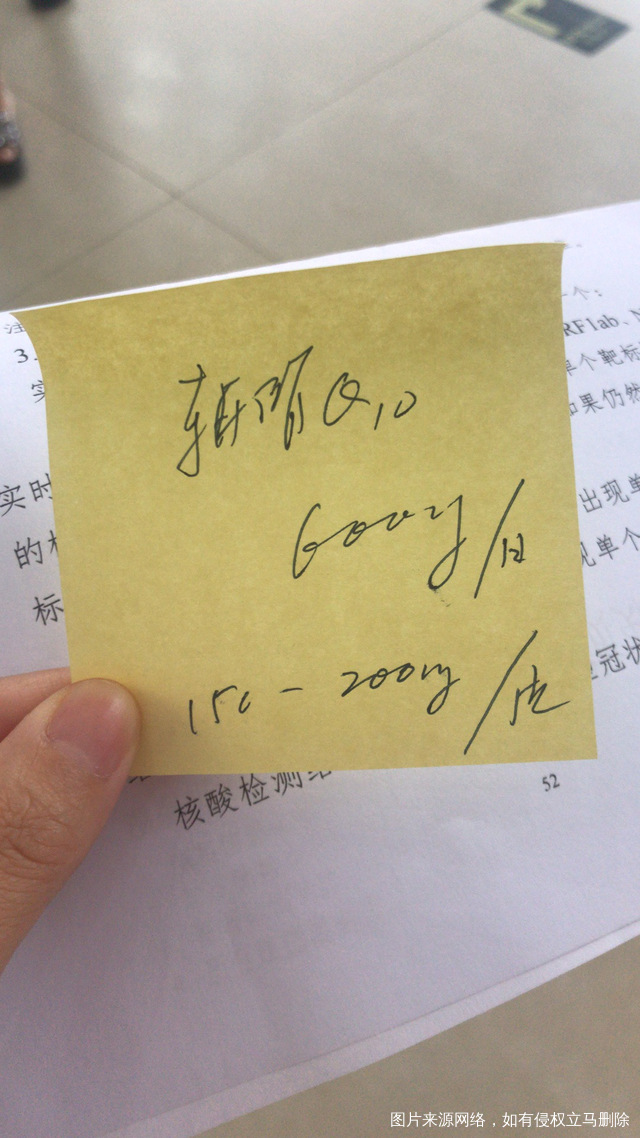 注
一个：
3.
RFlab、N
实
单个靶标
如果仍然
辅酶Q10
实时
出现单
600mg/日
的
现单个
标
冠状
150-200mg/次
核酸检测结
52
图片来源网络，如有侵权立马删除